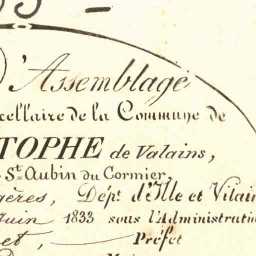 D'Assemblage
cellaire de la Commune de
TOPHE de Valains,
St. Aubin du Cormier,
gères, Dépt. d'Ille et Vilain
juin 1833 sous l'Administratio
et, Préfet